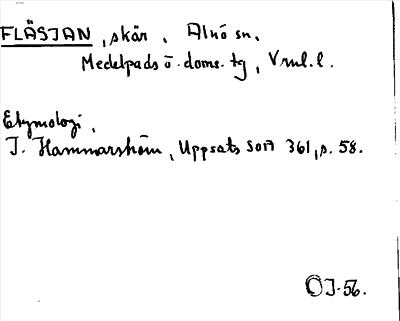 FLÄSJAN, skär, Alnö sn,
Medelpads ö. doms. tg, Vrnl. l.
Etymologi,
I. Hammarström, Uppsats SOA 361, s. 58.
OJ-56.